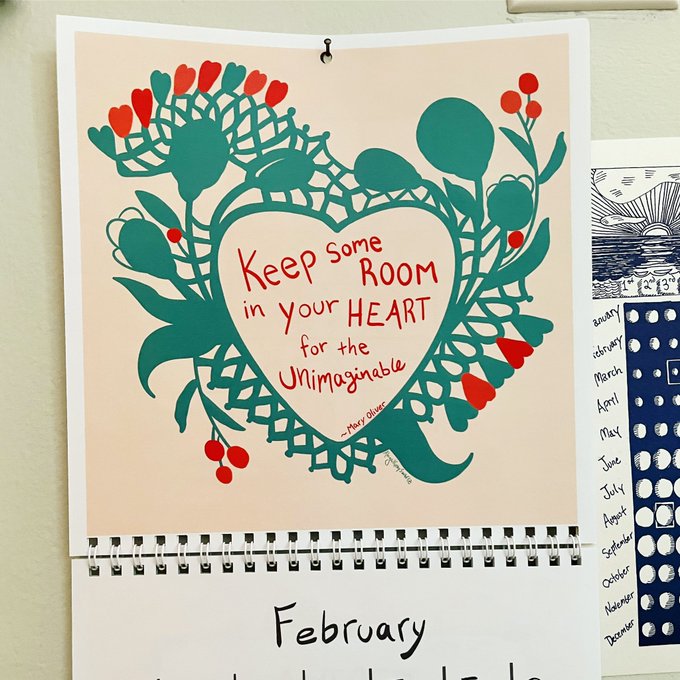 Keep some
ROOM
in your HEART
for the
Unimaginable
~Mary Oliver
February
1st 2nd 3rd
January
February
March
April
May
June
July
August
September
October
November
December